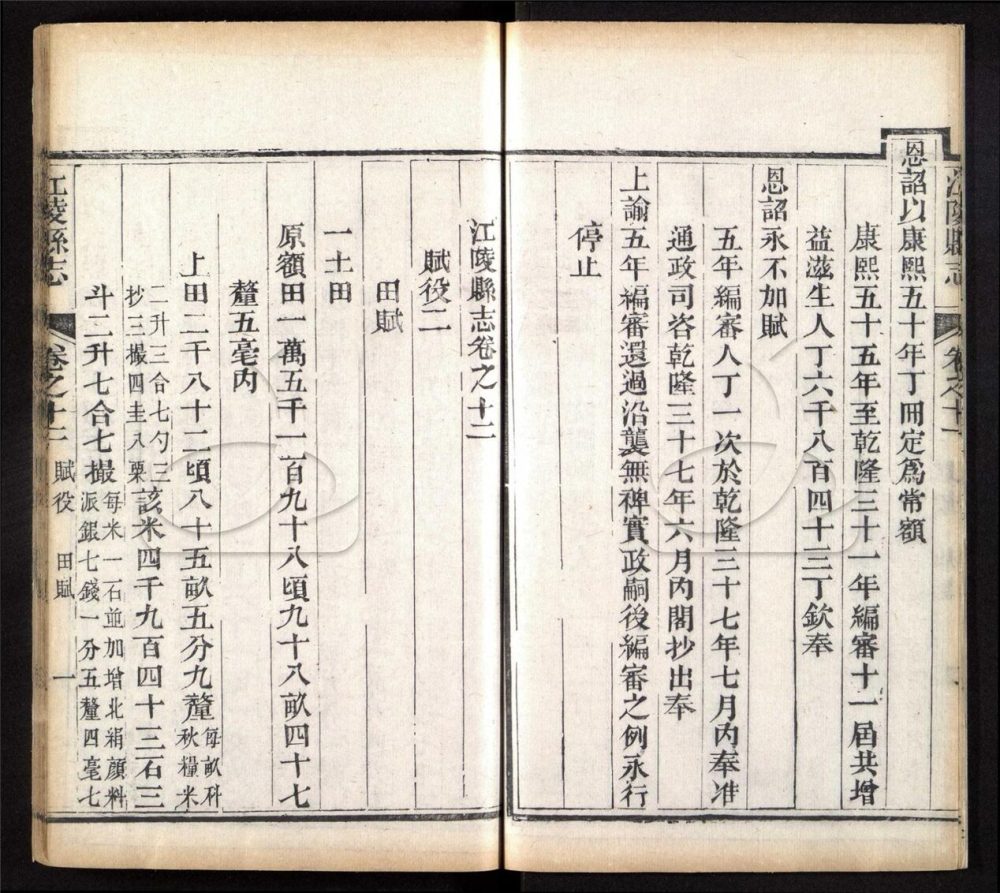 江陵縣志
卷之十一
恩詔以康熙五十年丁冊定爲常額
康熙五十五年至乾隆三十一年編審十一屆共增
益滋生人丁六千八百四十三丁欽奉
恩詔永不加賦
五年編審人丁一次於乾隆三十七年七月內奉准
通政司咨乾隆三十七年六月內閣抄出奉
上諭五年編審還過沿襲無裨實政嗣後編審之例永行
停止
江陵縣志卷之十二
賦役二
田賦
一土田
原額田一萬五千一百九十八頃九十八畝四十七
釐五毫內
上田二千八十二頃八十五畝五分九釐每畝科秋糧米
二升三合七勺三抄三撮四圭八粟該米四千九百四十三石三
斗二升七合七撮每米一石並加增北絹顏料派銀七錢一分五釐四毫七
江陵縣志
卷之十二
賦役
田賦
一